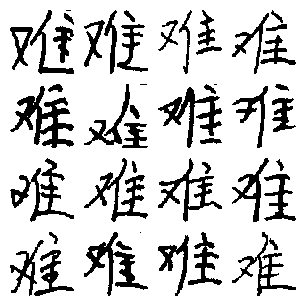 难难难难
难难难难
难难难难
难难难难